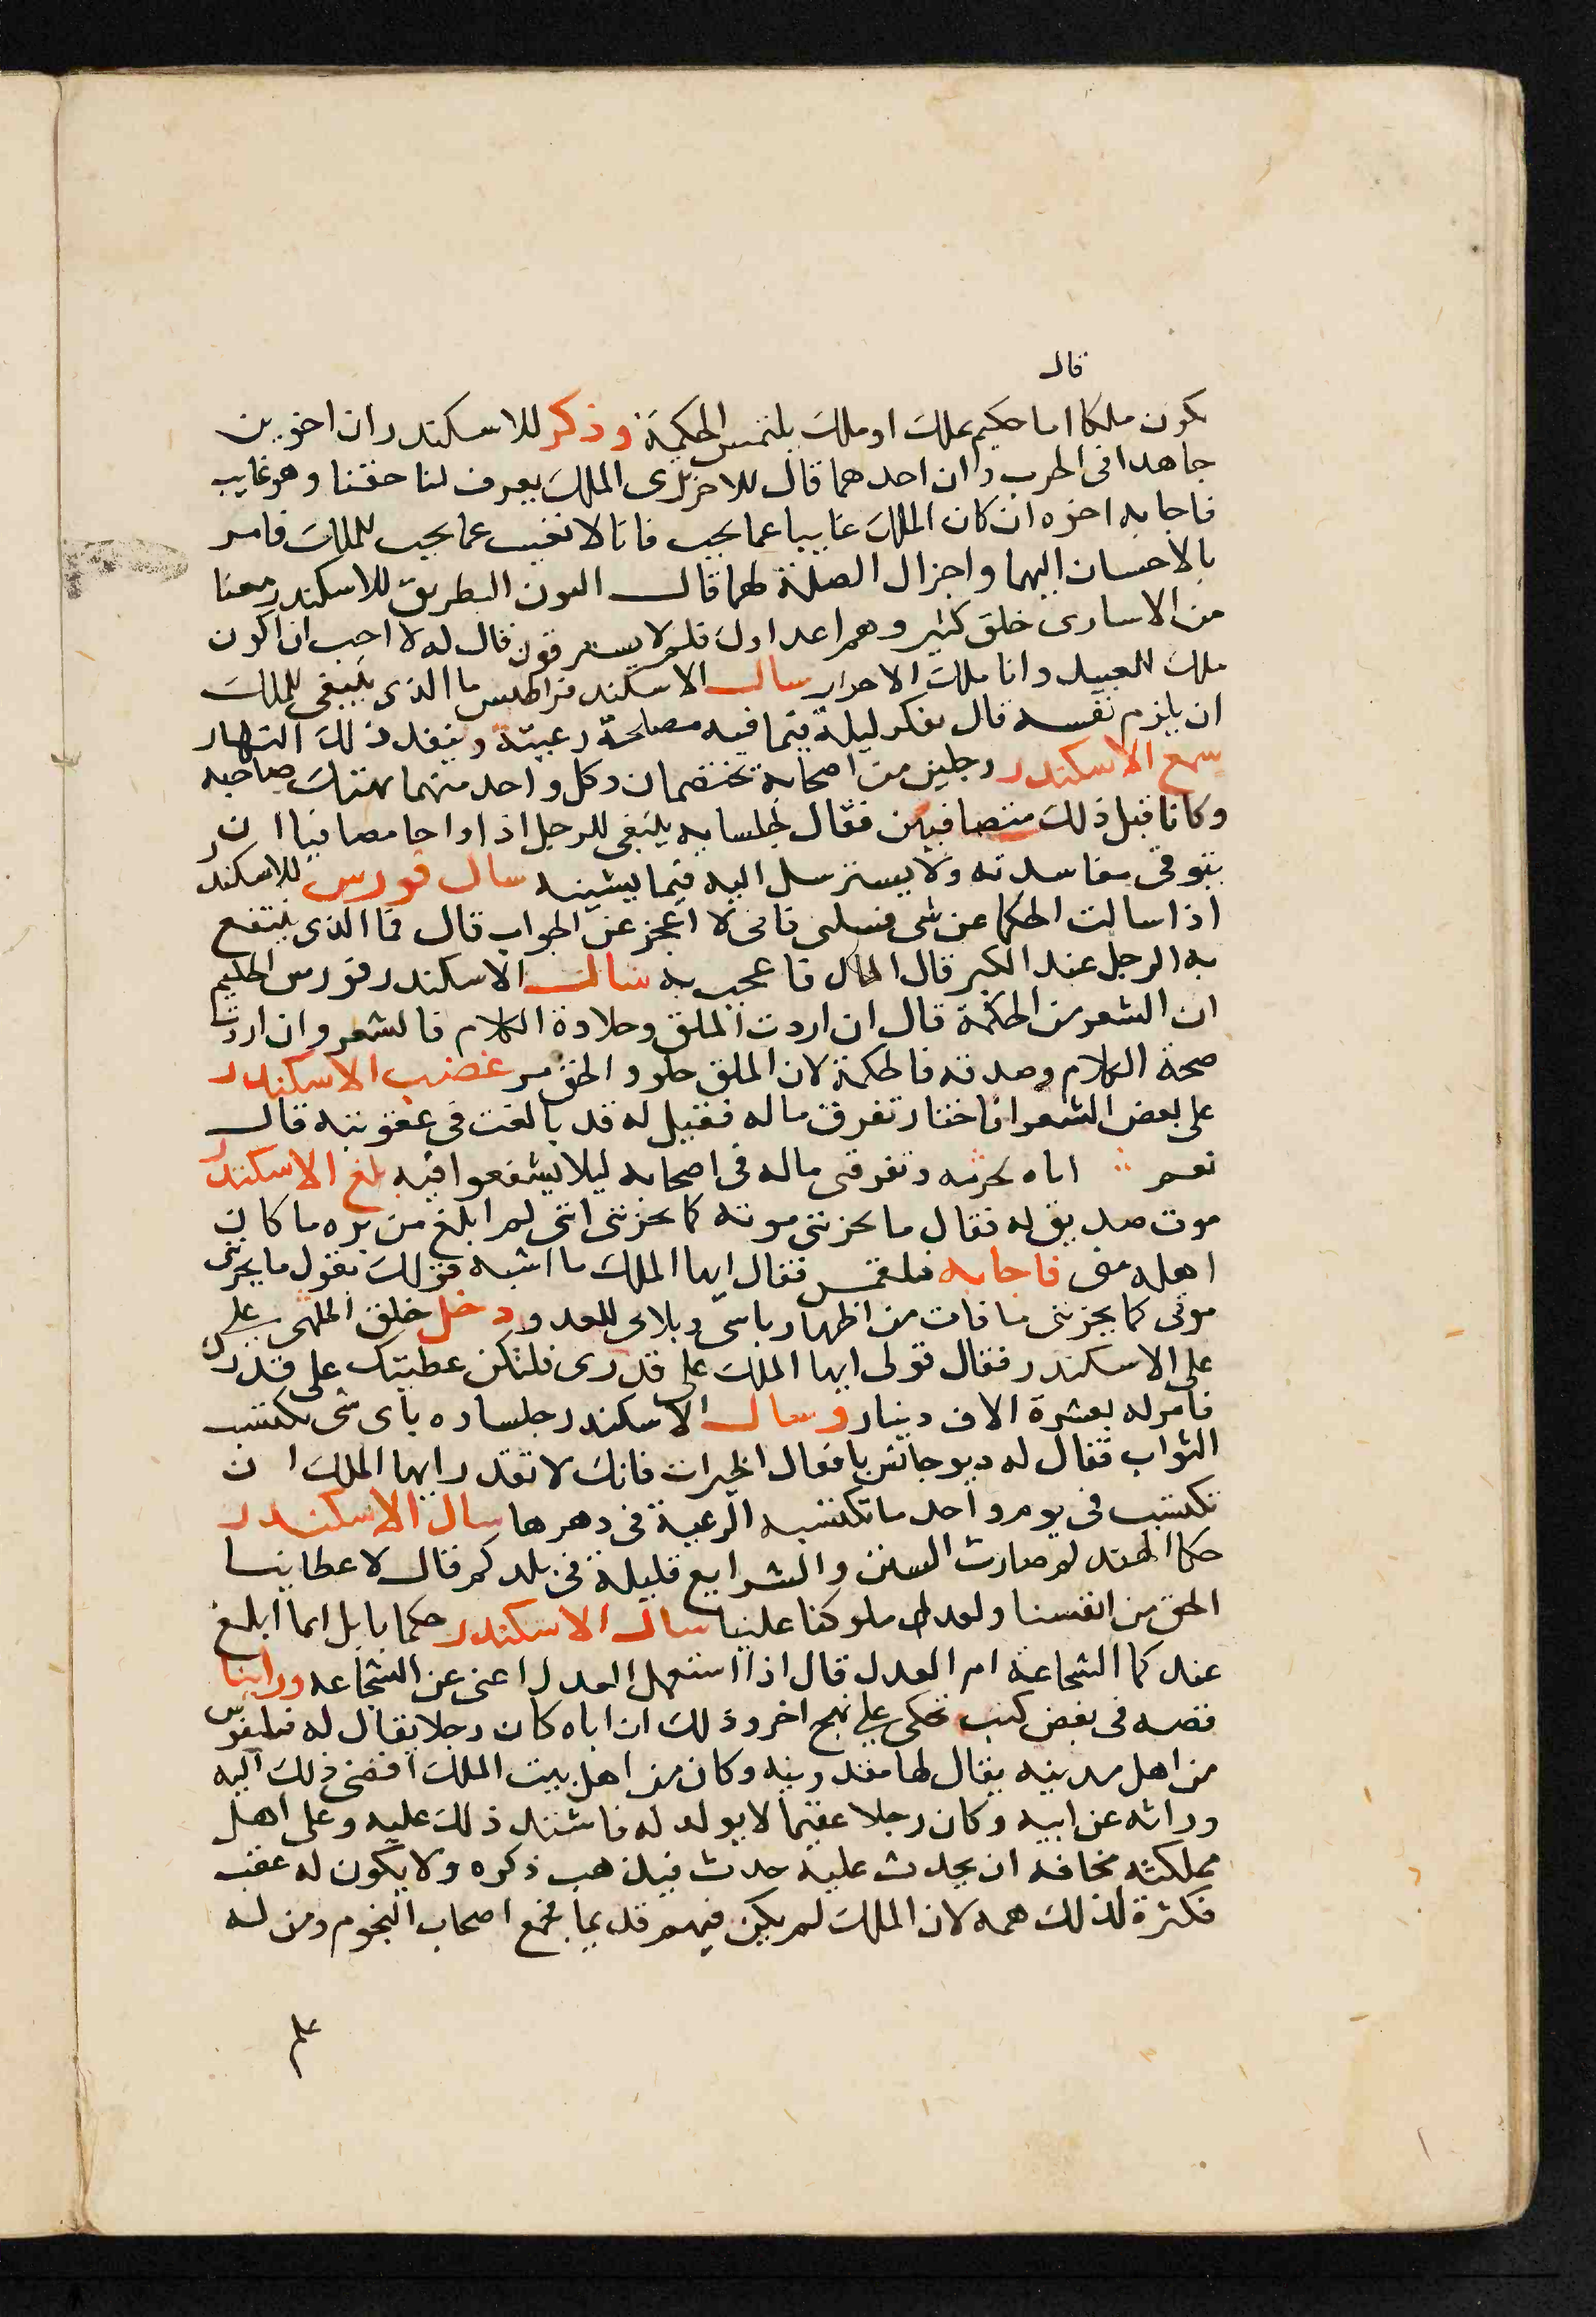 قال
يكون ملكا اما حكيم يملك او ملك يلتمس الحكمة وذكر للاسكندر ان اخوين
جاهدا فى الحرب وان احدهما قال للاخر ترى الملك يعرف لنا حقنا وهو غايب
فاجابه اخوه ان كان الملك غايبا عما يجب فانا لا نغيب عما يجب للملك فامر
بالاحسان اليهما واجزال الصلة لهما قال البون البطريق للاسكندر معنا
من الاسارى خلق كثير وهم اعداوك فلم لا يسترقون قال له لا احب ان اكون
ملك العبيد وانا ملك الاحرار سال الاسكندر ما الذى ينبغى للملك
ان يلزم نفسه قال يفكر ليلة فيما فيه مصلحة رعيته وينفد ذلك النهار
سمع الاسكندر رجلين من اصحابه يختصمان وكل واحد منهما يهتك صاحبه
وكانا قبل ذلك متصافيين فقال لجلسايه ينبغى للرجل اذا اواخا مصافيا ان
يتوقى مفاسدته ولا يسترسل اليه فيما يشينه سال فورس للاسكندر
اذا سالت الحكما عن شى فسلنى فانى لا اعجز عن الجواب قال فما الذى ينتفع
به الرجل عند الكبر قال المال فاعجب به سال الاسكندر فورس الحكيم
ان الشعر من الحكمة قال ان اردت الملق وحلاوة الكلام فالشعر وان اردت
صحة الكلام وصدقه فالحكمة لان الملق حلو والحق مر غضب الاسكندر
على بعض الشعرا فاختار تفرق ماله فقيل له قد بالغت فى عقوبته قال
نعم اما ه بحرمه وتفرقى ماله فى اصحابه ليلا يشفعوا فيه بلغ الاسكندر
موت صديق له فقال ما يحزننى موته كما يحزننى اننى لم ابلغ من بره ما كان
اهله منى فاجابه فقال ايها الملك ما اشبه قولك بقول ما يحزننى
موتى كما يحزننى ما فات من اظهار باسى وبلاى للعدو ودخل خلق الملهى على
على الاسكندر فقال تولى ايها الملك على قدرى فلتكن عطيتك على قدرك
فامر له بعشرة الاف دينار وسال الاسكندر جلساوه باى شى يكتسب
الثواب فقال له ديوجانس بافعال الخيرات فانك لا تقدر ايها الملك ان
تكتسب فى يوم واحد ما تكتسبه الرعية فى دهرها سال الاسكندر
حكما الهند لم صارت السنن والشرايع قليلة فى بلدكم قال لاعطاينا
الحق من انفسنا ولعدل ملوكنا علينا سال الاسكندر حكما بابل ايما ابلغ
عندكم الشجاعة ام العدل قال اذا استعمل العدل اغنى عن الشجاعه وراينا
قصه فى بعض كتب تحكى على نهج اخر وذلك ان اباه كان رجلا يقال له فيلفوس
من اهل مدينه يقال لها مقدونيه وكان من اهل بيت الملك افضى ذلك اليه
وراثه عن ابيه وكان رجلا عقيما لا يولد له فاشتد ذلك عليه وعلى اهل
مملكته مخافه ان يحدث عليه حدث فيذهب ذكره ولا يكون له عقب
فكثرة لذلك همه لان الملك لم يكن فيهم قديما فجمع اصحاب النجوم ومن له
علم